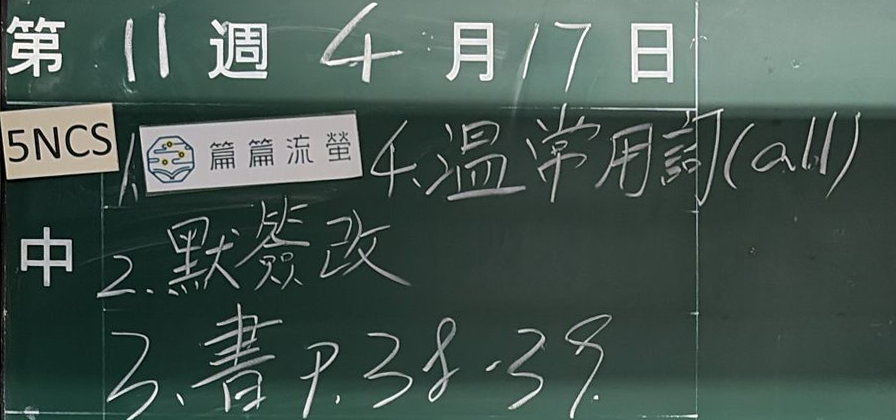 第 11 週 4 月 17 日
5NCS
中
1. 篇篇流螢
2. 默簽改
3. 書 P.38-39.
4. 温常用詞(all)